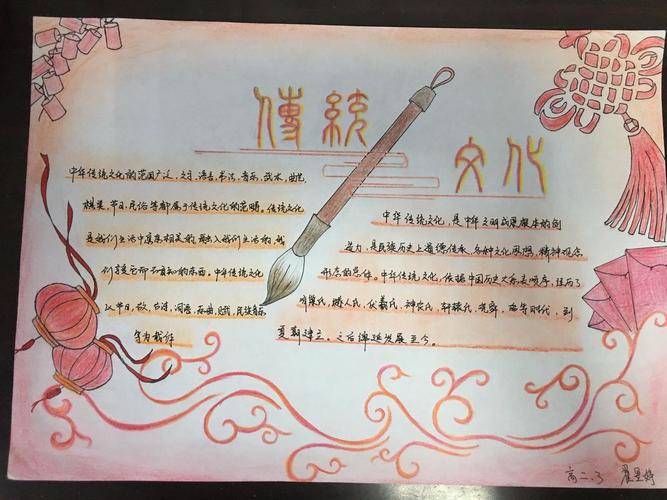 傳統
文化
中华传统文化的范围广泛,文字、语言、书法、音乐、武术、曲艺、
棋类、节日、民俗等都属于传统文化的范畴。传统文化
是我们生活中息息相关的,融入我们生活的,我
们享受它而不自知的东西。中华传统文化
以节日、
等为载体
中华传统文化,是中华文明成果根本的创
造力,是民族历史上道德传承、各种文化思想、精神观念
形态的总体。中华传统文化,依据中国历史大系表顺序,经历了
有巢氏、燧人氏、伏羲氏、神农氏、轩辕氏、尧舜、禹等时代,到
夏朝建立。之后绵延发展至今。
高二.3